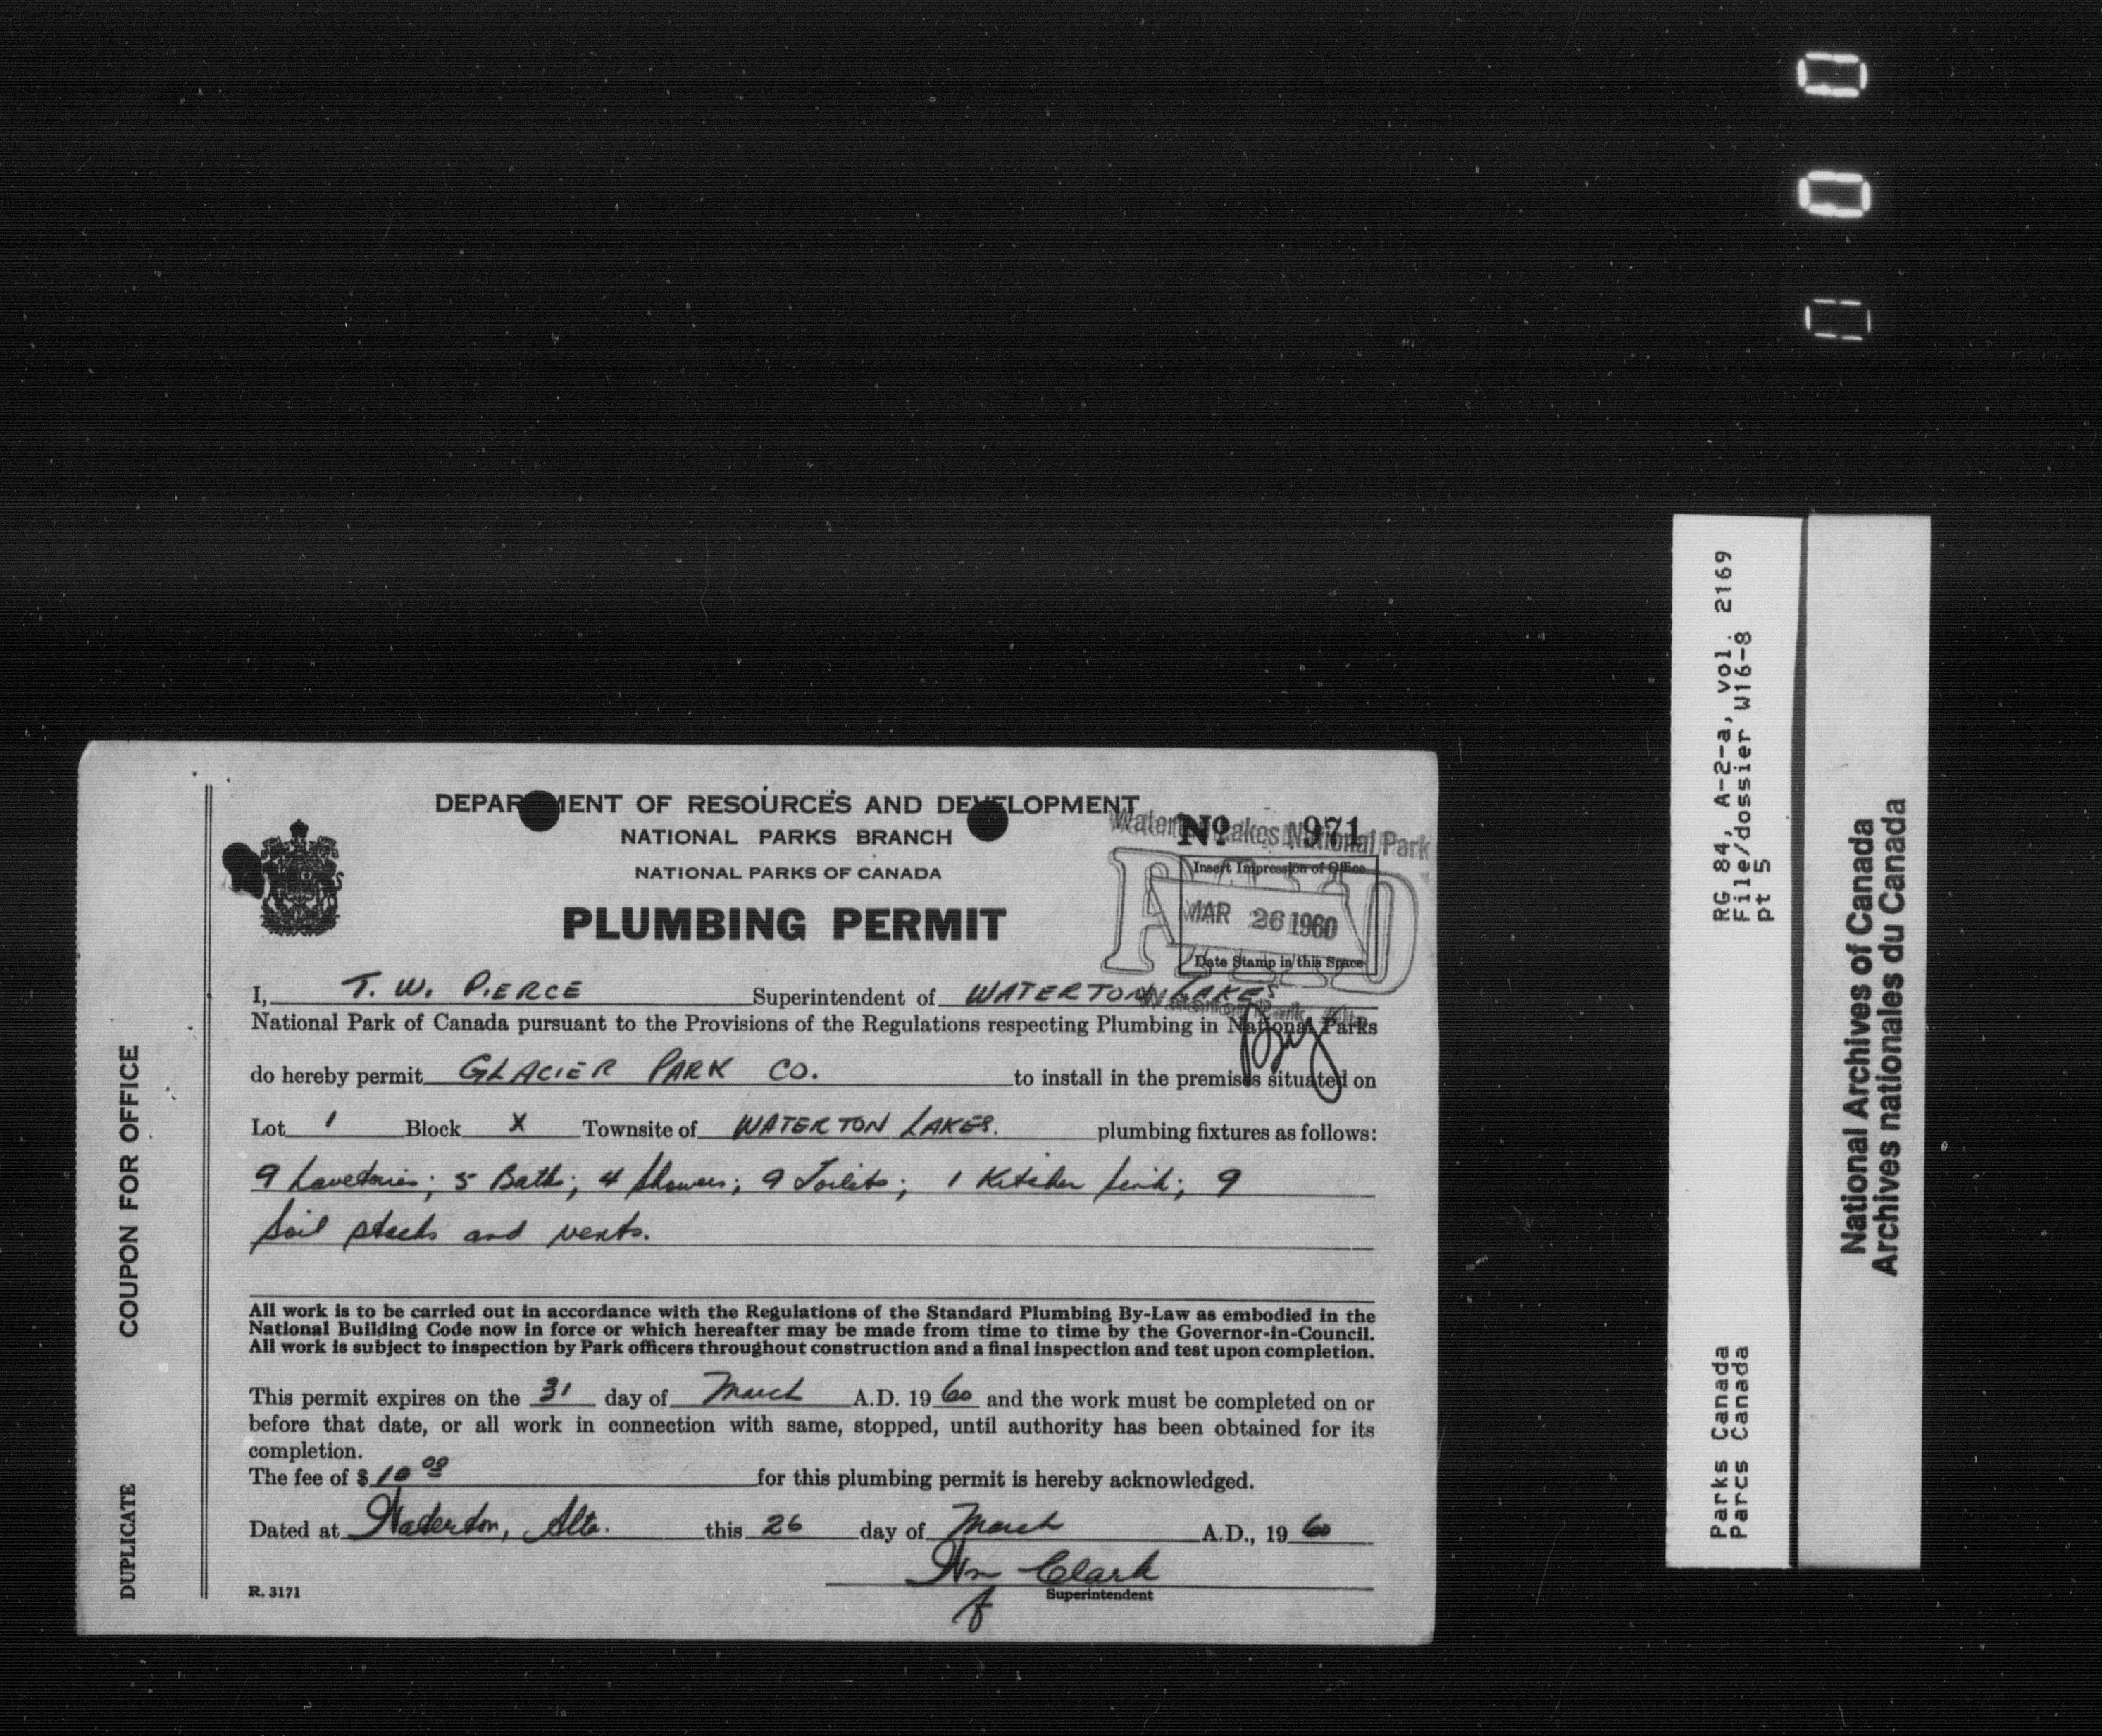 DEPARTMENT OF RESOURCES AND DEVELOPMENT
NATIONAL PARKS BRANCH
NATIONAL PARKS OF CANADA
PLUMBING PERMIT
Waterton Lakes National Park
No 971
Insert Impression of Office
PAID
MAR 26 1960
Date Stamp in this Space
I, T. W. PIERCE Superintendent of WATERTON LAKES
National Park of Canada pursuant to the Provisions of the Regulations respecting Plumbing in National Parks
do hereby permit GLACIER PARK CO. to install in the premises situated on
Lot 1 Block X Townsite of WATERTON LAKES. plumbing fixtures as follows:
9 Lavetories; 5 Baths; 4 Showers; 9 Toilets; 1 Kitchen sink; 9
soil stacks and vents.
All work is to be carried out in accordance with the Regulations of the Standard Plumbing By-Law as embodied in the
National Building Code now in force or which hereafter may be made from time to time by the Governor-in-Council.
All work is subject to inspection by Park officers throughout construction and a final inspection and test upon completion.
This permit expires on the 31 day of March A.D. 19 60 and the work must be completed on or
before that date, or all work in connection with same, stopped, until authority has been obtained for its
completion.
The fee of $ 10 00 for this plumbing permit is hereby acknowledged.
Dated at Waterton, Alta. this 26 day of March A.D., 19 60
Wm Clark
f Superintendent
R. 3171
COUPON FOR OFFICE
DUPLICATE
000
RG 84, A-2-a, vol. 2169
File/dossier W16-8
pt 5
Parks Canada
Parcs Canada
National Archives of Canada
Archives nationales du Canada